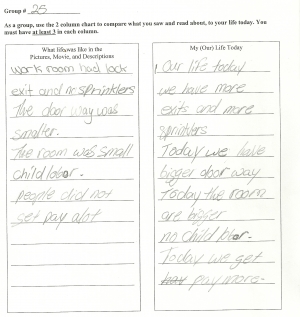 Group # 25
As a group, use the 2 column chart to compare what you saw and read about, to your life today. You
must have at least 3 in each column.
What life was like in the
Pictures, Movie, and Descriptions
work room had lock
exit and no sprinklers
The door way was
smaller.
The room was small
child labor.
people did not
get pay alot
My (Our) Life Today
Our life today
we have more
exits and more
sprinklers
Today we have
bigger door way
Today the room
are bigger
no child labor.
Today we get
pay more.